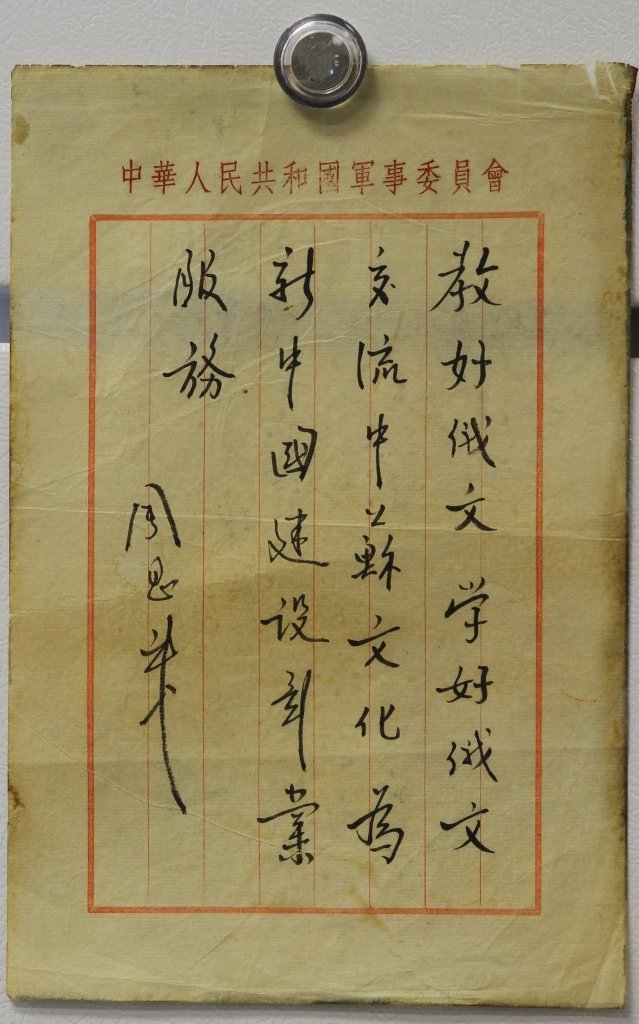 中華人民共和國軍事委員會
教好俄文学好俄文
交流中蘇文化為
新中國建设事業
服務
周恩来